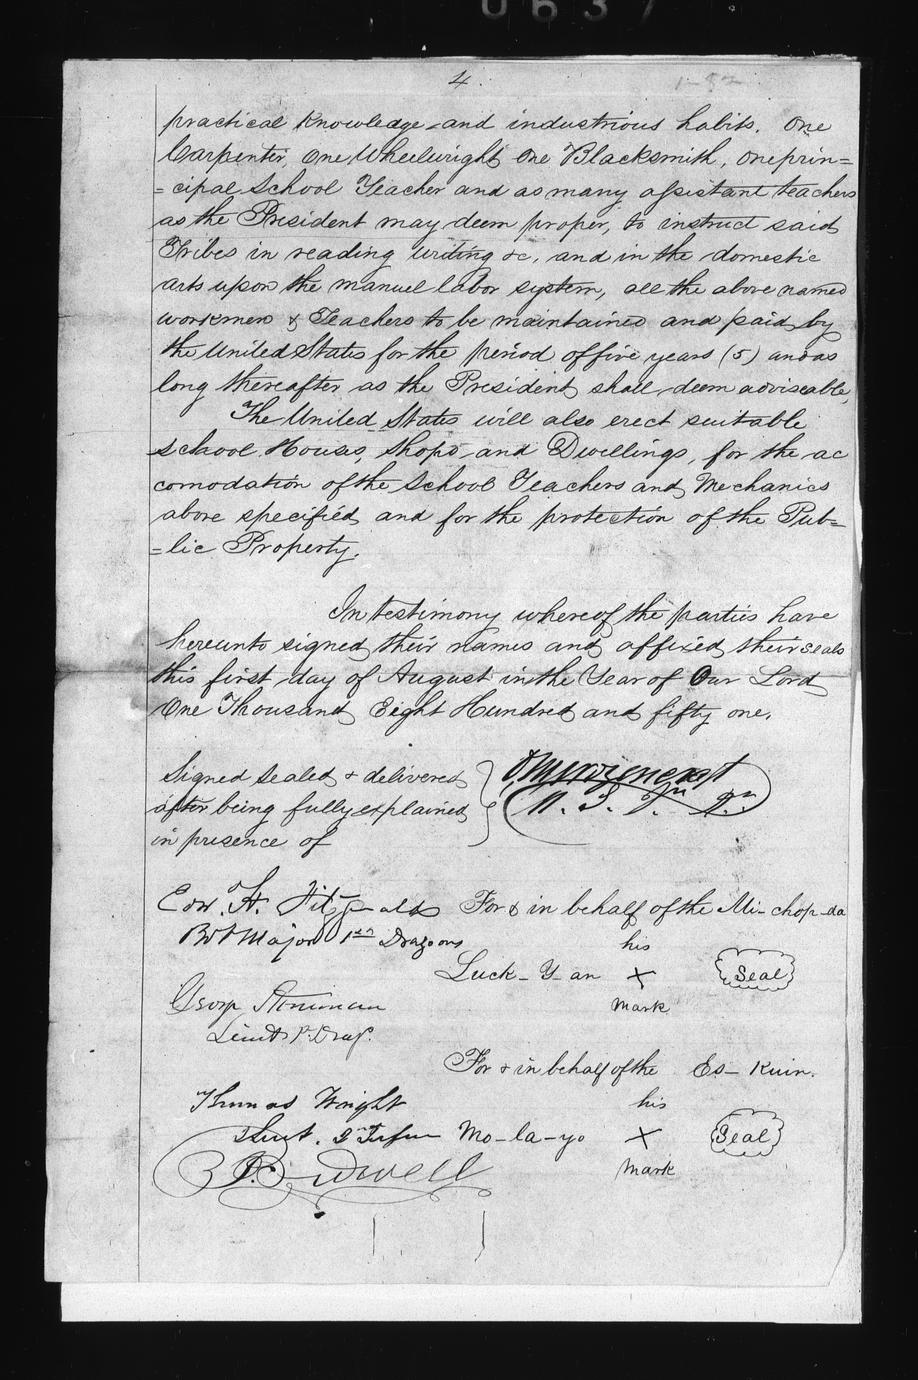 0637
4
1-52
practical knowledge and industrious habits. One
Carpenter, One Wheelwright, One Blacksmith, one prin=
=cipal School Teacher and as many assistant teachers
as the President may deem proper, to instruct said
Tribes in reading writing &c, and in the domestic
arts upon the manuel labor system, all the above named
workmen & Teachers to be maintained and paid by
the United States for the period of five years (5) and as
long thereafter as the President shall deem adviseable,
The United States will also erect suitable
School Houses, Shops and Dwellings, for the ac
comodation of the School Teachers and Mechanics
above specified and for the protection of the Pub=
=lic Property.
In testimony whereof the parties have
hereunto signed their names and affixed their seals
this first day of August in the Year of Our Lord
One Thousand Eight Hundred and fifty one.
Signed Sealed & delivered
after being fully explained
in presence of
O M Wozencraft
Edw. H. Fitzgerald
Bvt Major 1st Dragoons
For & in behalf of the Mi-chop-da
his
Luck-Y-an X Seal
mark
George Stoneman
Lieut 1st Drag.
For & in behalf of the Es-Kuin.
Thomas Wright
his
Lieut. 2d Infn Mo-la-yo X Seal
mark
J. Bidwell